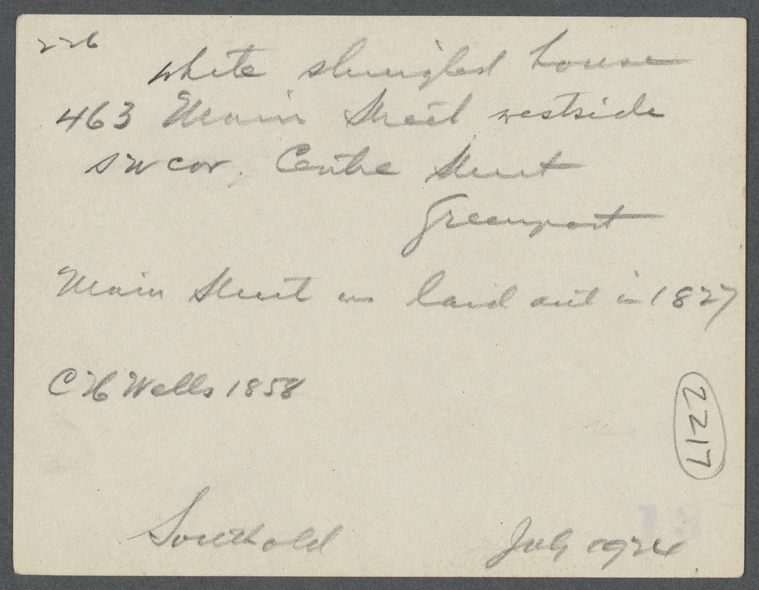 226
white shingled house
463 Main Street westside
SW cor. Centre Street
Greenport
Main Street was laid out in 1827
C H Wells 1858
2217
Southold July 1924